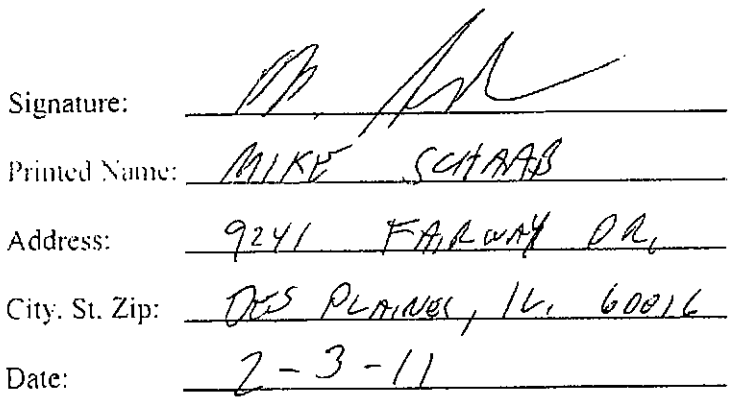 Signature:
Printed Name: MIKE SCHAAB
Address: 9241 FAIRWAY DR,
City. St. Zip: DES PLAINES, IL. 60016
Date: 2-3-11